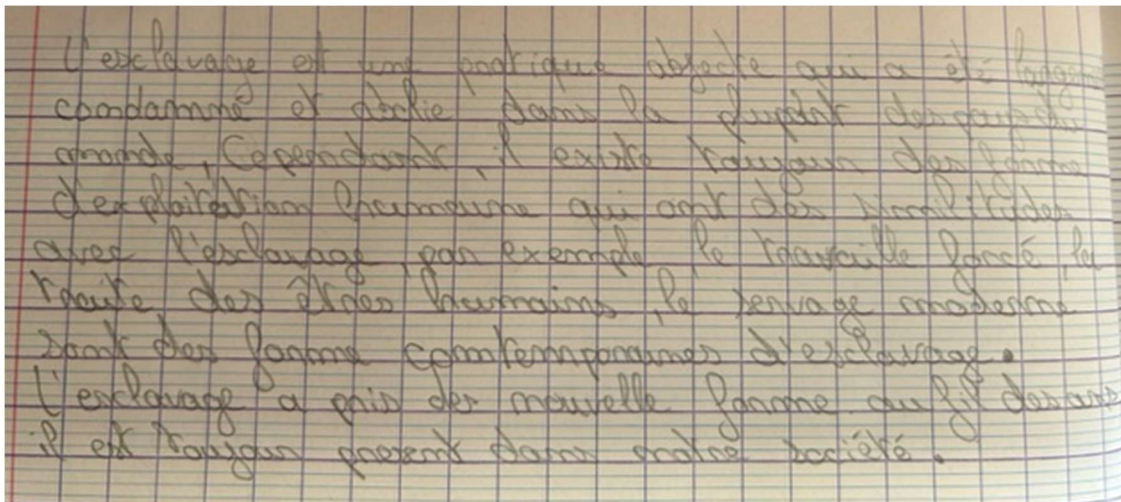 L'esclavage est une pratique abjecte qui a été
condamné et abolie dans la plupart des pays du
monde, Cependant, il existe toujours des forme
d'exploitation humaine qui ont des similitudes
avec l'esclavage, par exemple le travaille forcé, la
traite des êtres humains, le servage moderne
sont des forme comtemporaines d'esclavage.
L'esclavage a pris des nouvelle forme au fil des ans
il est toujour present dans notre société.